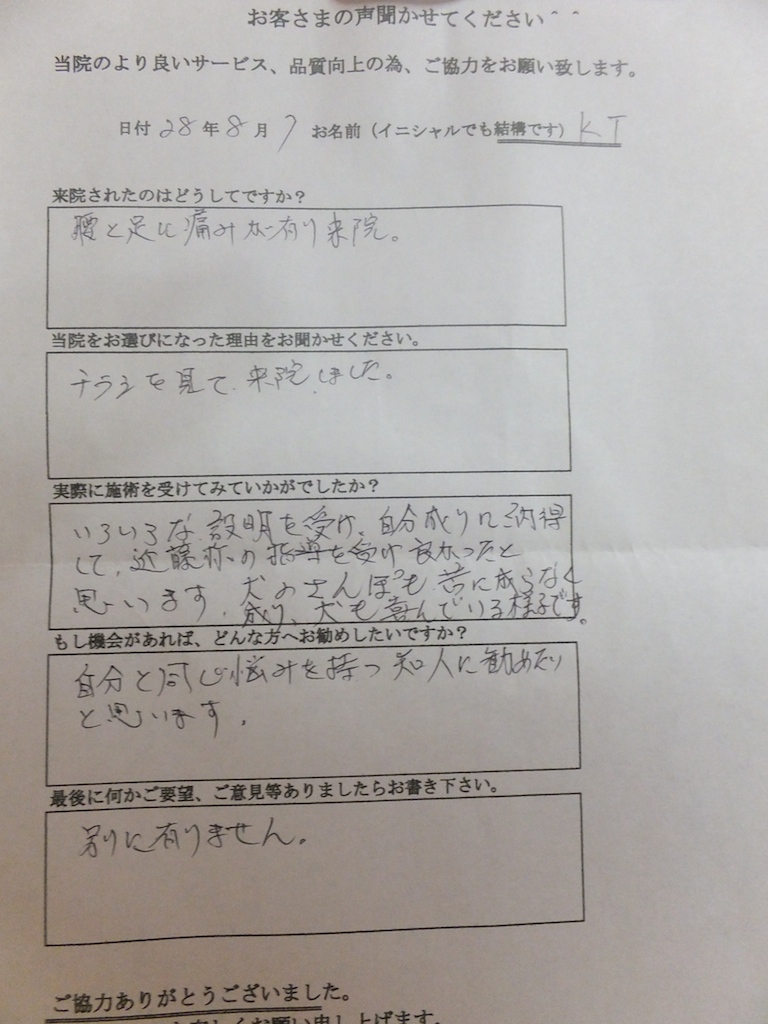 お客さまの声聞かせてください＾＾
当院のより良いサービス、品質向上の為、ご協力をお願い致します。
日付 28 年 8 月 7 お名前（イニシャルでも結構です） K T
来院されたのはどうしてですか？
腰と足に痛みが有り来院。
当院をお選びになった理由をお聞かせください。
チラシを見て、来院しました。
実際に施術を受けてみていかがでしたか？
いろいろな説明を受け、自分成りに納得
して、近藤様の指導を受け良かったと
思います。犬のさんぽも苦に成らなく
成り、犬も喜んでいる様子です。
もし機会があれば、どんな方へお勧めしたいですか？
自分と同じ悩みを持つ知人に勧めたい
と思います。
最後に何かご要望、ご意見等ありましたらお書き下さい。
別に有りません。
ご協力ありがとうございました。
しくお願い申し上げます。